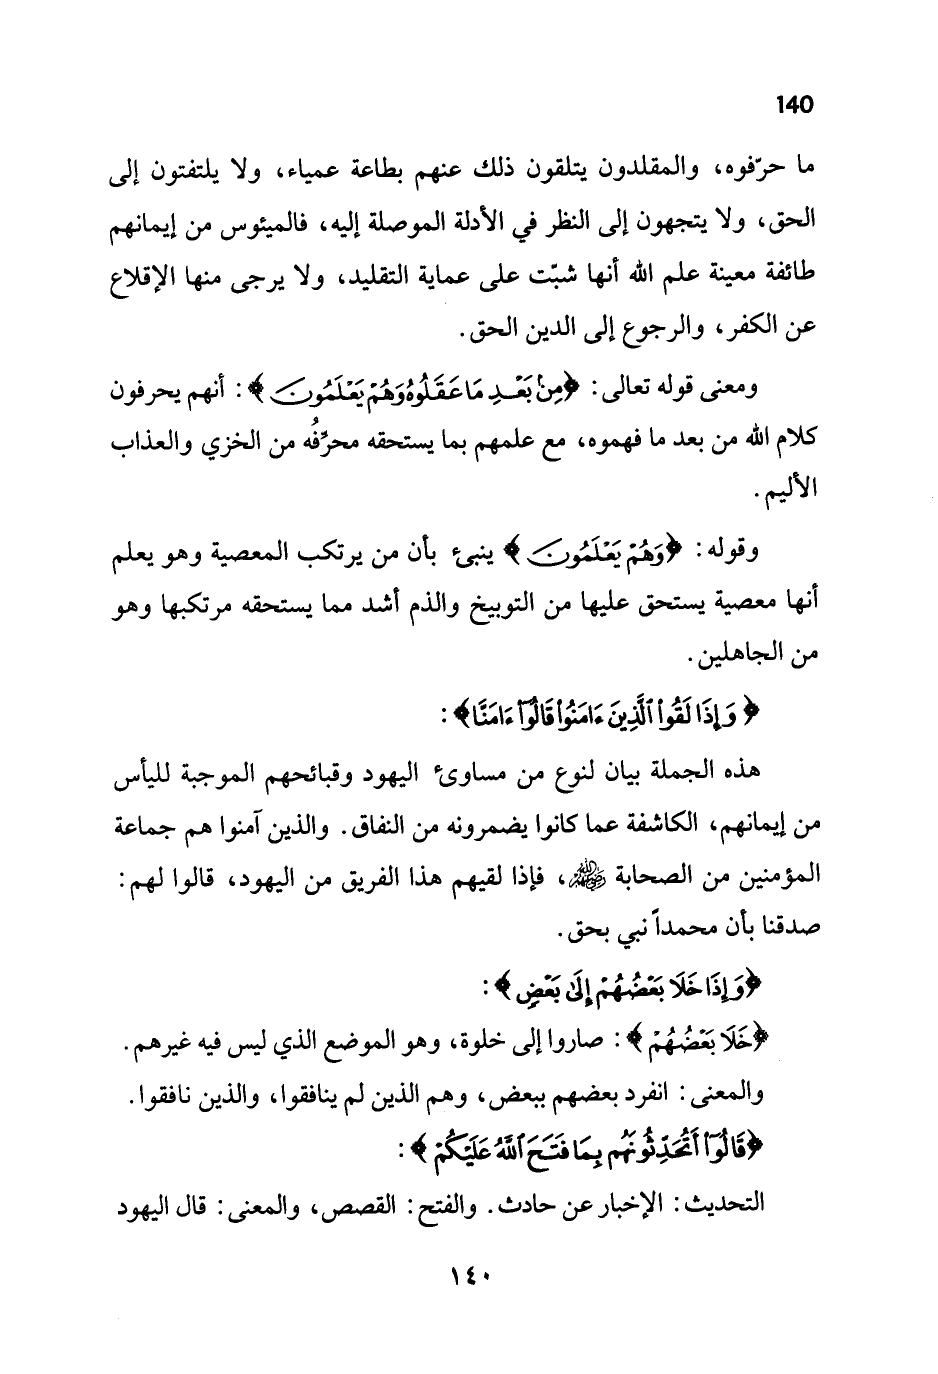 140
ما حرّفوه، والمقلدون يتلقون ذلك عنهم بطاعة عمياء، ولا يلتفتون إلى
الحق، ولا يتجهون إلى النظر في الأدلة الموصلة إليه، فالميئوس من إيمانهم
طائفة معينة علم الله أنها شبّت على عماية التقليد، ولا يرجى منها الإقلاع
عن الكفر، والرجوع إلى الدين الحق.
ومعنى قوله تعالى: ﴿مِنۢ بَعْدِ مَا عَقَلُوهُ وَهُمْ يَعْلَمُونَ﴾: أنهم يحرفون
كلام الله من بعد ما فهموه، مع علمهم بما يستحقه محرِّفُه من الخزي والعذاب
الأليم.
وقوله: ﴿وَهُمْ يَعْلَمُونَ﴾ ينبىء بأن من يرتكب المعصية وهو يعلم
أنها معصية يستحق عليها من التوبيخ والذم أشد مما يستحقه مرتكبها وهو
من الجاهلين.
﴿وَإِذَا لَقُوا۟ ٱلَّذِينَ ءَامَنُوا۟ قَالُوٓا۟ ءَامَنَّا﴾:
هذه الجملة بيان لنوع من مساوىء اليهود وقبائحهم الموجبة لليأس
من إيمانهم، الكاشفة عما كانوا يضمرونه من النفاق. والذين آمنوا هم جماعة
المؤمنين من الصحابة رضي الله عنهم، فإذا لقيهم هذا الفريق من اليهود، قالوا لهم:
صدقنا بأن محمداً نبي بحق.
﴿وَإِذَا خَلَا بَعْضُهُمْ إِلَىٰ بَعْضٍ﴾:
﴿خَلَا بَعْضُهُمْ﴾: صاروا إلى خلوة، وهو الموضع الذي ليس فيه غيرهم.
والمعنى: انفرد بعضهم ببعض، وهم الذين لم ينافقوا، والذين نافقوا.
﴿قَالُوٓا۟ أَتُحَدِّثُونَهُم بِمَا فَتَحَ ٱللَّهُ عَلَيْكُمْ﴾:
التحديث: الإخبار عن حادث. والفتح: القصص، والمعنى: قال اليهود
١٤٠